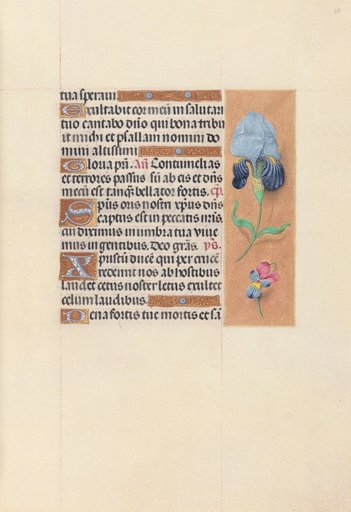 tua speraui.
Exultabit cor meū in salutari
tuo cantabo dn̄o qui bona tribu
it michi et psallam nomini do
mini altissimi
Gloria pr̄i. añ Contumelias
et terrores passus sū ab eis et dn̄s
mecū est tanq̄ bellator fortis. cp̄.
Sp̄us oris nostri xp̄us dn̄s
captus est in peccatis nr̄is,
cui diximus in umbra tua viue
mus in gentibus, deo grās. ym̄s.
Xp̄m ducē qui per crucē
redemit nos ab hostibus
laudet cetus noster letus exultet
celum laudibus.
Pena fortis tue mortis et sā